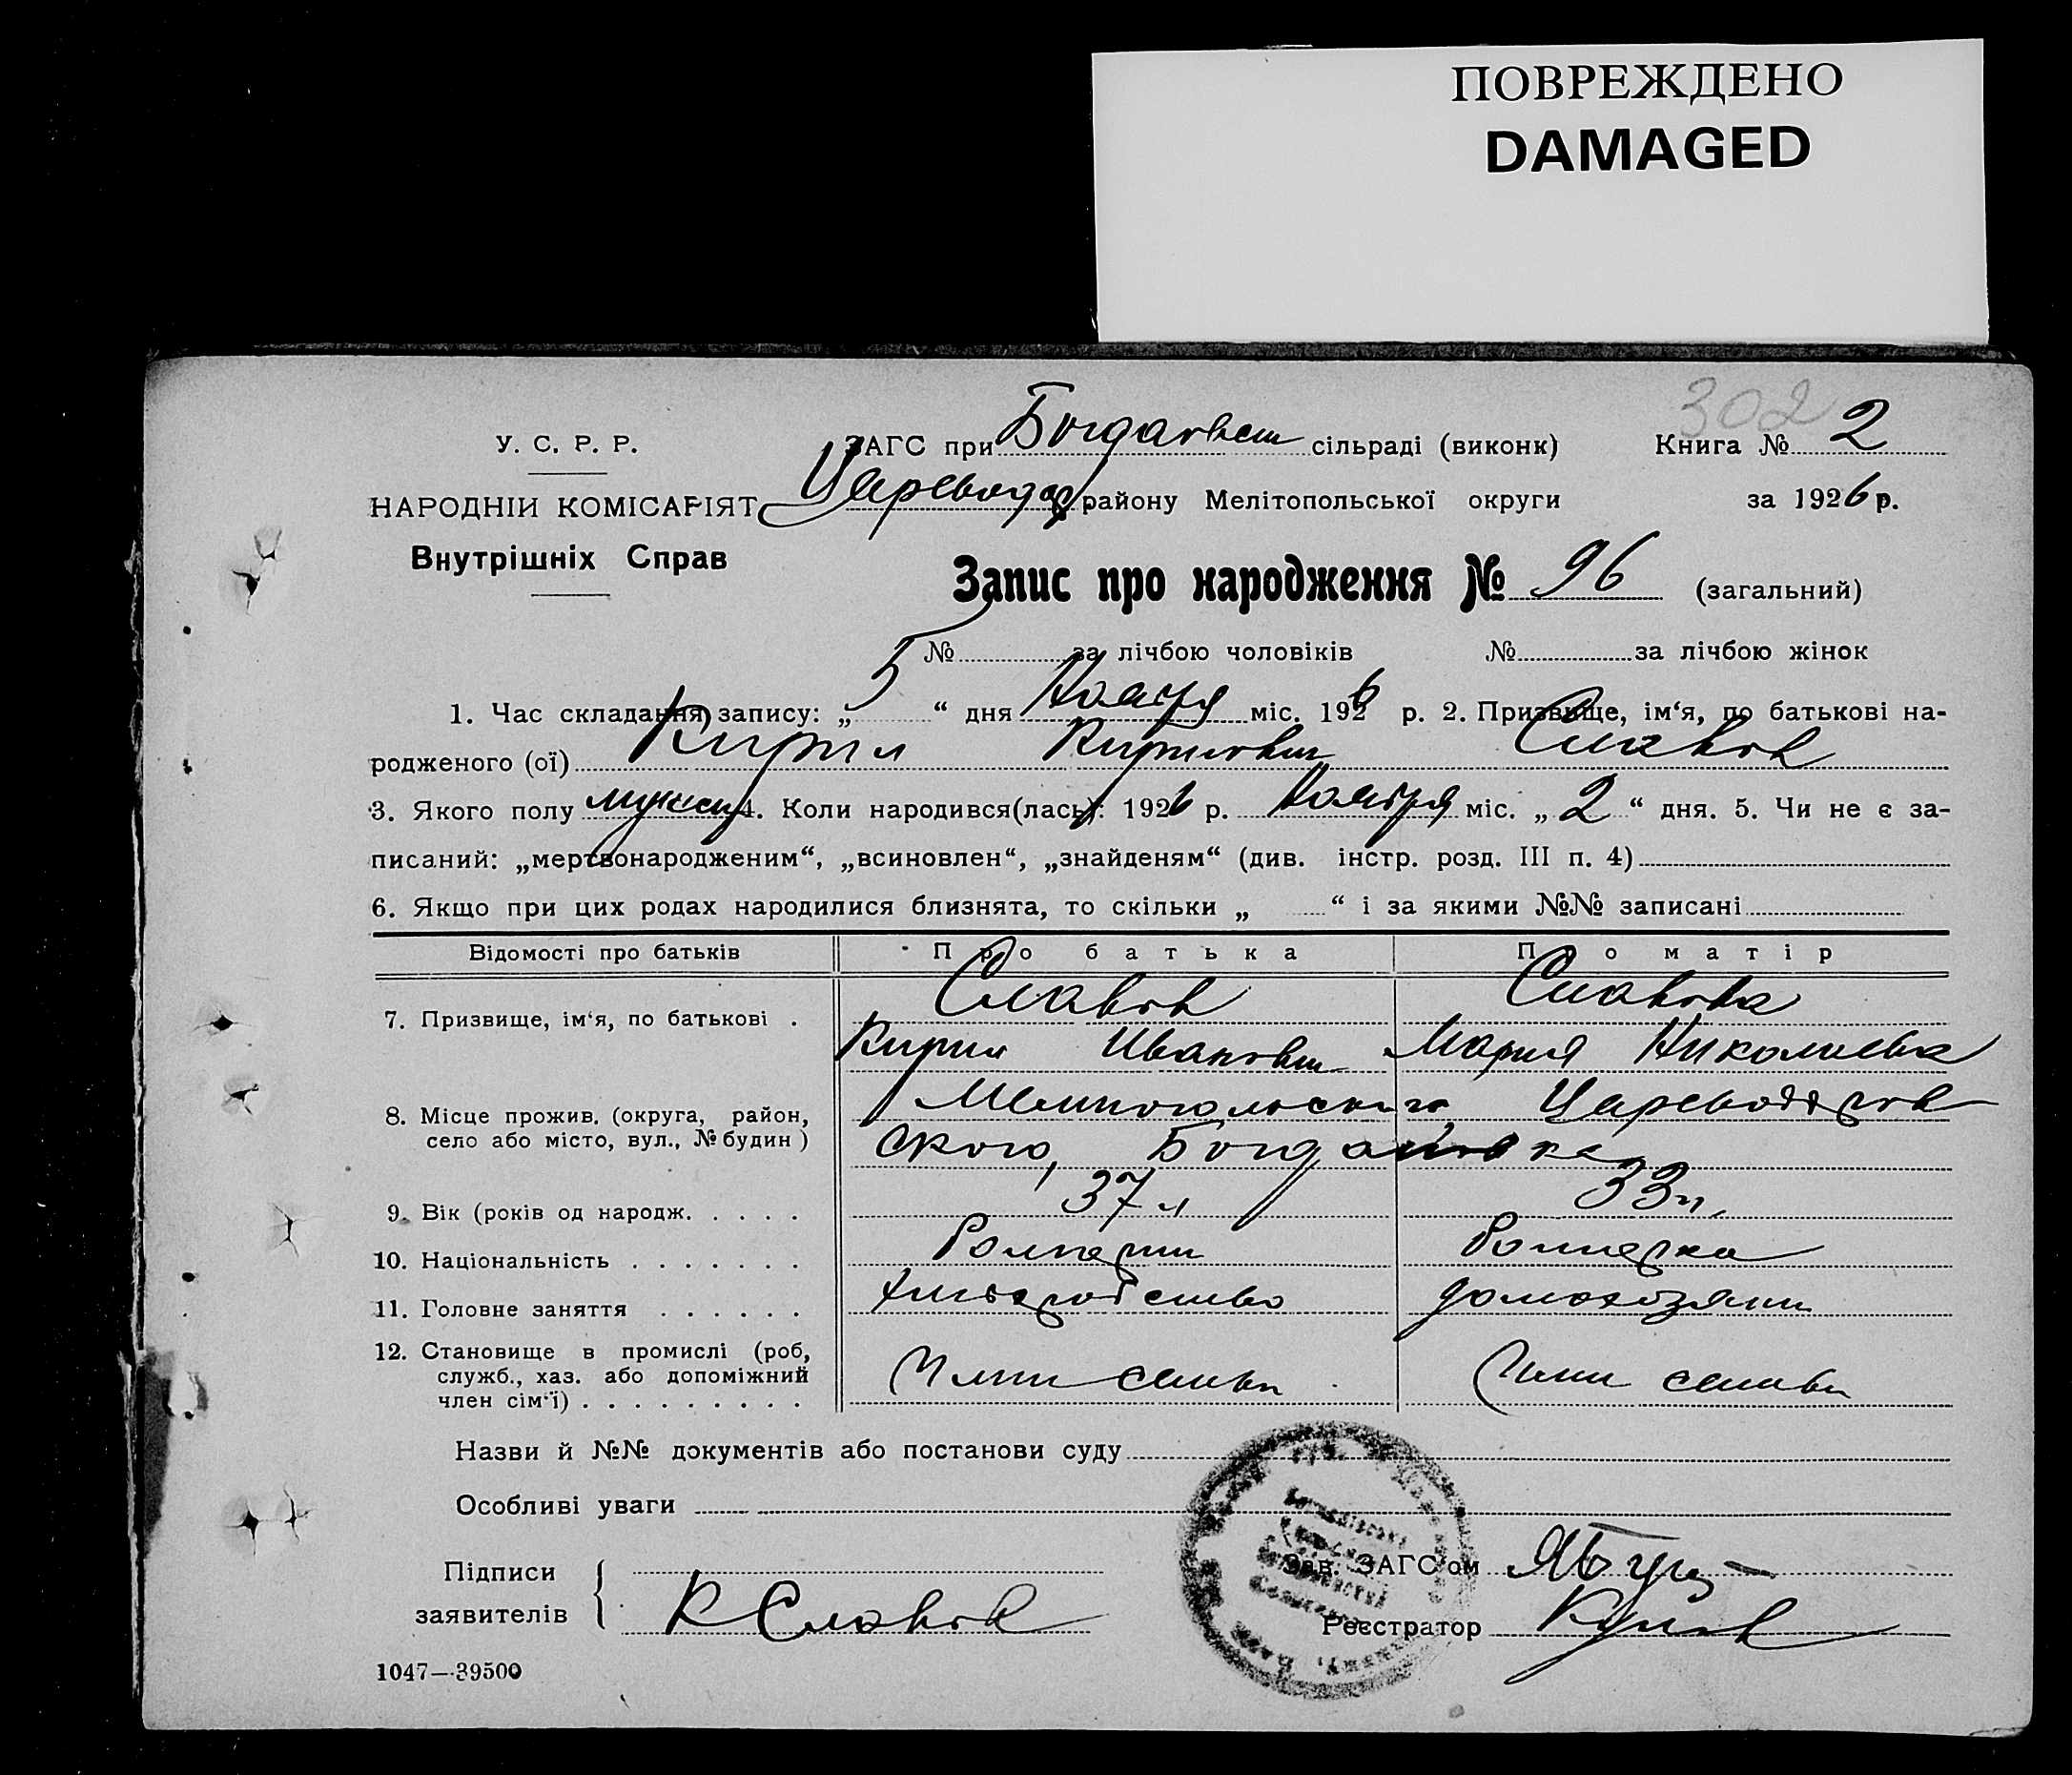 ПОВРЕЖДЕНО
DAMAGED
302
У. С. Р. Р.
ЗАГС при Богдановск сільраді (виконк)
Книга № 2
НАРОДНІЙ КОМІСАРІЯТ
Царевода району Мелітопольської округи
за 1926 р.
Внутрішніх Справ
Запис про народження № 96 (загальний)
№ за лічбою чоловіків № за лічбою жінок
1. Час складання запису: „ 5 “ дня Ноября міс. 1926 р. 2. Призвище, ім‘я, по батькові на-
родженого (ої) Кирил Кирилович Славов
3. Якого полу мужск 4. Коли народився(лась): 1926 р. Ноября міс. „ 2 “ дня. 5. Чи не є за-
писаний: „мертвонародженим“, „всиновлен“, „знайденям“ (див. інстр. розд. III п. 4)
6. Якщо при цих родах народилися близнята, то скільки „ “ і за якими №№ записані
Відомості про батьків Про батька Про матір
7. Призвище, ім‘я, по батькові . Славов Славова
Кирил Иванович Мария Николаевна
8. Місце прожив. (округа, район, Мелитопольского Цареводаров
село або місто, вул., № будин ) ского, Богдановка
9. Вік (років од народж. . . . . 37 л 33 л.
10. Національність . . . . . . . Болгарин Болгарка
11. Головне заняття . . . . . . хлебаробство домохозяин
12. Становище в промислі (роб,
служб., хаз. або допоміжний Член семьи Член семьи
член сім‘ї) . . . . . . . . .
Назви й №№ документів або постанови суду
Особливі уваги
Підписи
заявителів
К Славов
Зав. ЗАГС‘ом
Реєстратор
1047—39500